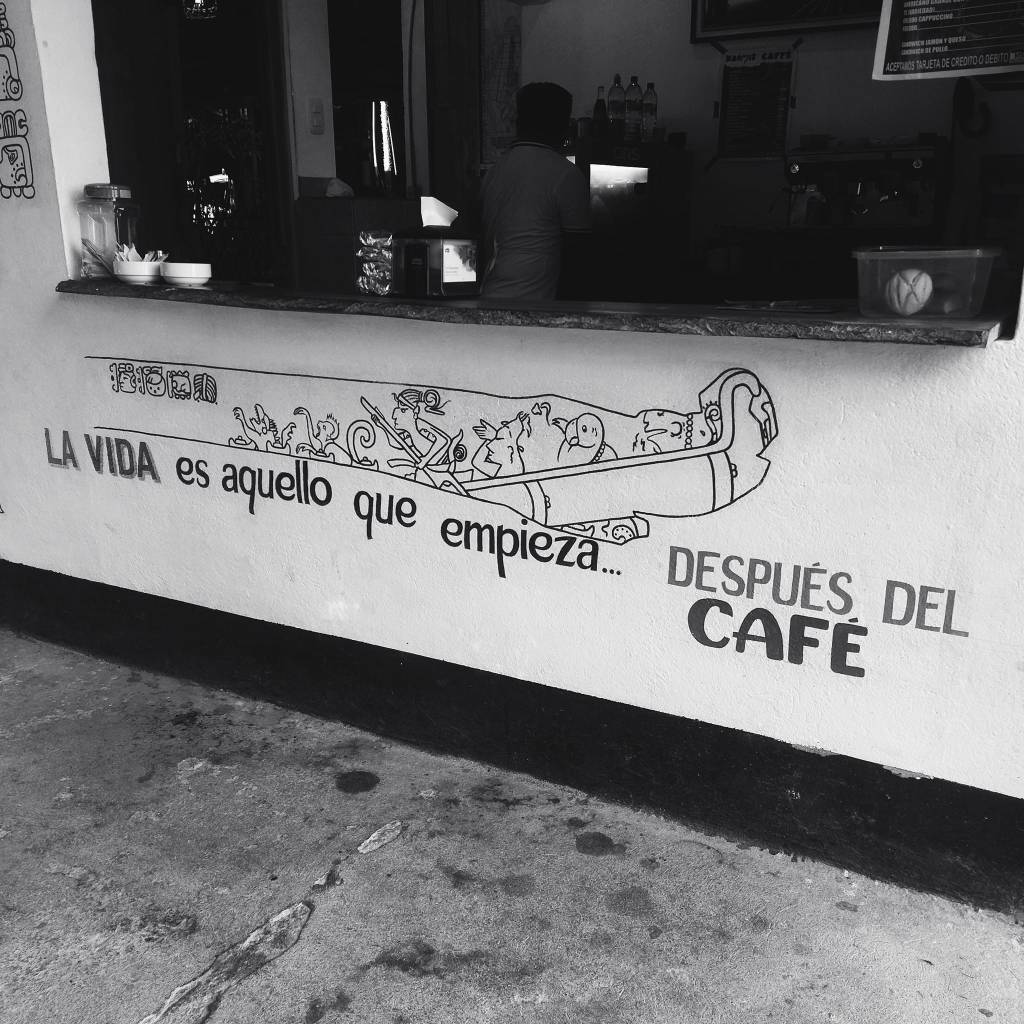 MEDIO CAPPUCCINO
SANDWICH JAMON Y QUESO
SANDWICH DE POLLO
ACEPTAMOS TARJETA DE CREDITO O DEBITO
LA VIDA es aquello que empieza...
DESPUÉS DEL
CAFÉ